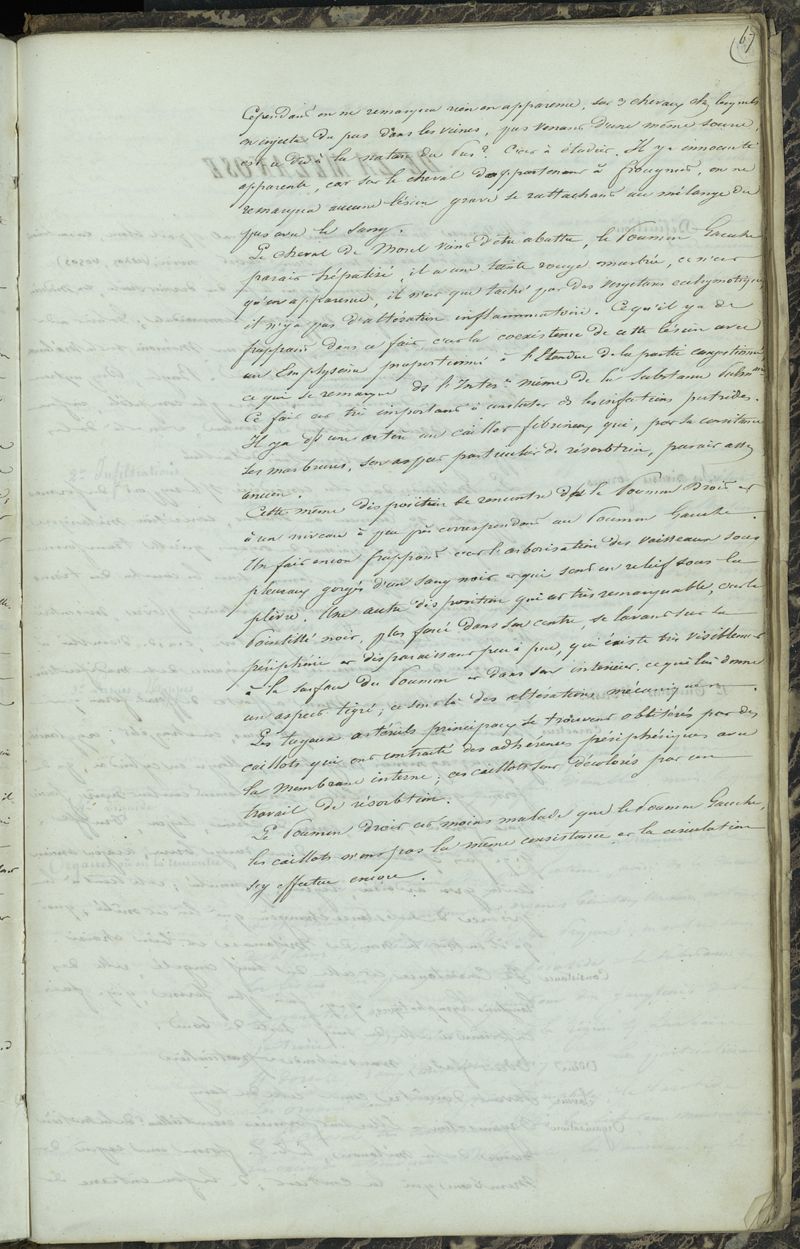 67
Cependant on ne remarqua rien en apparence, sur 3 chevaux chez lesquels
on injecta du pus dans les veines, pus venant d'une même source,
est-ce dû à la nature du Pus? C'est à étudier. Il y a innocuité
apparente, car sur le cheval appartenant à, on ne
remarqua aucune lésion grave se rattachant au mélange du
pus avec le sang.
Le cheval de Morel vient d'être abattu, le Poumon Gauche
parait hépatisé, il a une teinte rouge marbrée, ce n'est
qu'en apparence, il n'est que taché par des vergetures ecchymotiques
il n'y a pas d'altération inflammatoire. Ce qu'il y a de
frappant dans ce fait c'est la coexistence de cette lésion avec
un Emphysème proportionné à l'étendue de la partie congestionnée
ce qui se remarque ds l'Inter.re même de la substance
Ce fait est très important à constater ds les infections putrides.
Il y a ds une artère un caillot fibrineux qui, par sa consistance
ses marbrures, son aspect particulier de résorbtion, parait assez
ancien.
Cette même disposition se rencontre ds le Poumon Droit et
à un niveau à peu près correspondant au Poumon Gauche.
Un fait encore frappant c'est l'arborisation des vaisseaux sous
pleuraux gorgés d'un sang noir et qui sont en relief sous la
plèvre. Une autre disposition qui est très remarquable, c'est le
Pointillé noir, plus foncé dans son centre, se lavant sur la
périphérie et disparaissant peu à peu, qui existe très visiblement
à la surface du Poumon et dans son intérieur, ce qui lui donne
un aspect tigré; ce sont là des altérations mécaniques.
Les tuyaux artériels principaux se trouvent oblitérés par des
caillots qui ont contracté des adhérences périphériques avec
la membrane interne; ces caillots sont décolorés par un
travail de résorbtion.
Le Poumon Droit est moins malade que le Poumon Gauche,
les caillots n'ont pas la même consistance et la circulation
s'y effectue encore.